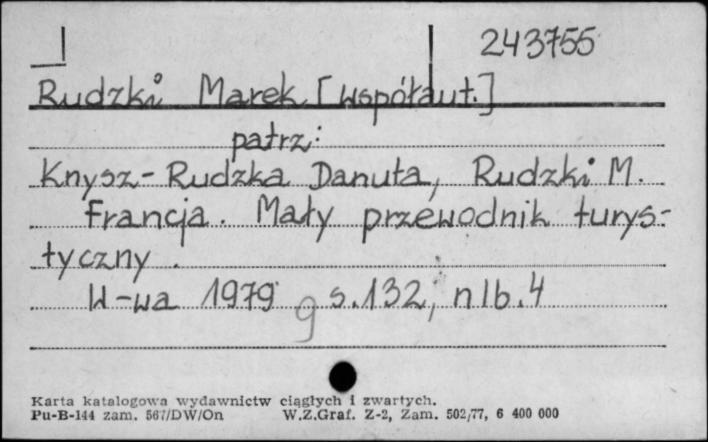 243755
Rudzki Marek [współaut.]
patrz:
Knysz-Rudzka Danuta, Rudzki M.
Francja. Mały przewodnik turys-
tyczny.
W-wa 1979 s.132, nlb.4
g
Karta katalogowa wydawnictw ciągłych i zwartych.
Pu-B-144 zam. 567/DW/On W.Z.Graf. Z-2, Zam. 502/77, 6 400 000